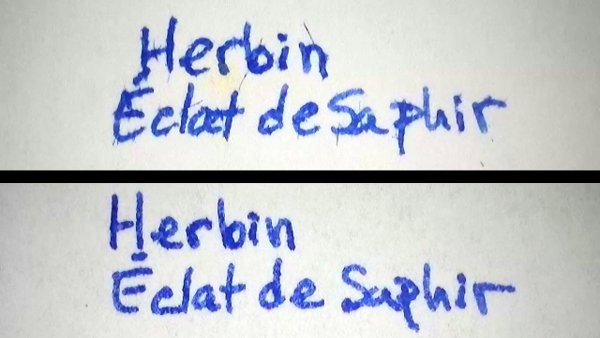 Herbin
Éclat de Saphir
Herbin
Éclat de Saphir